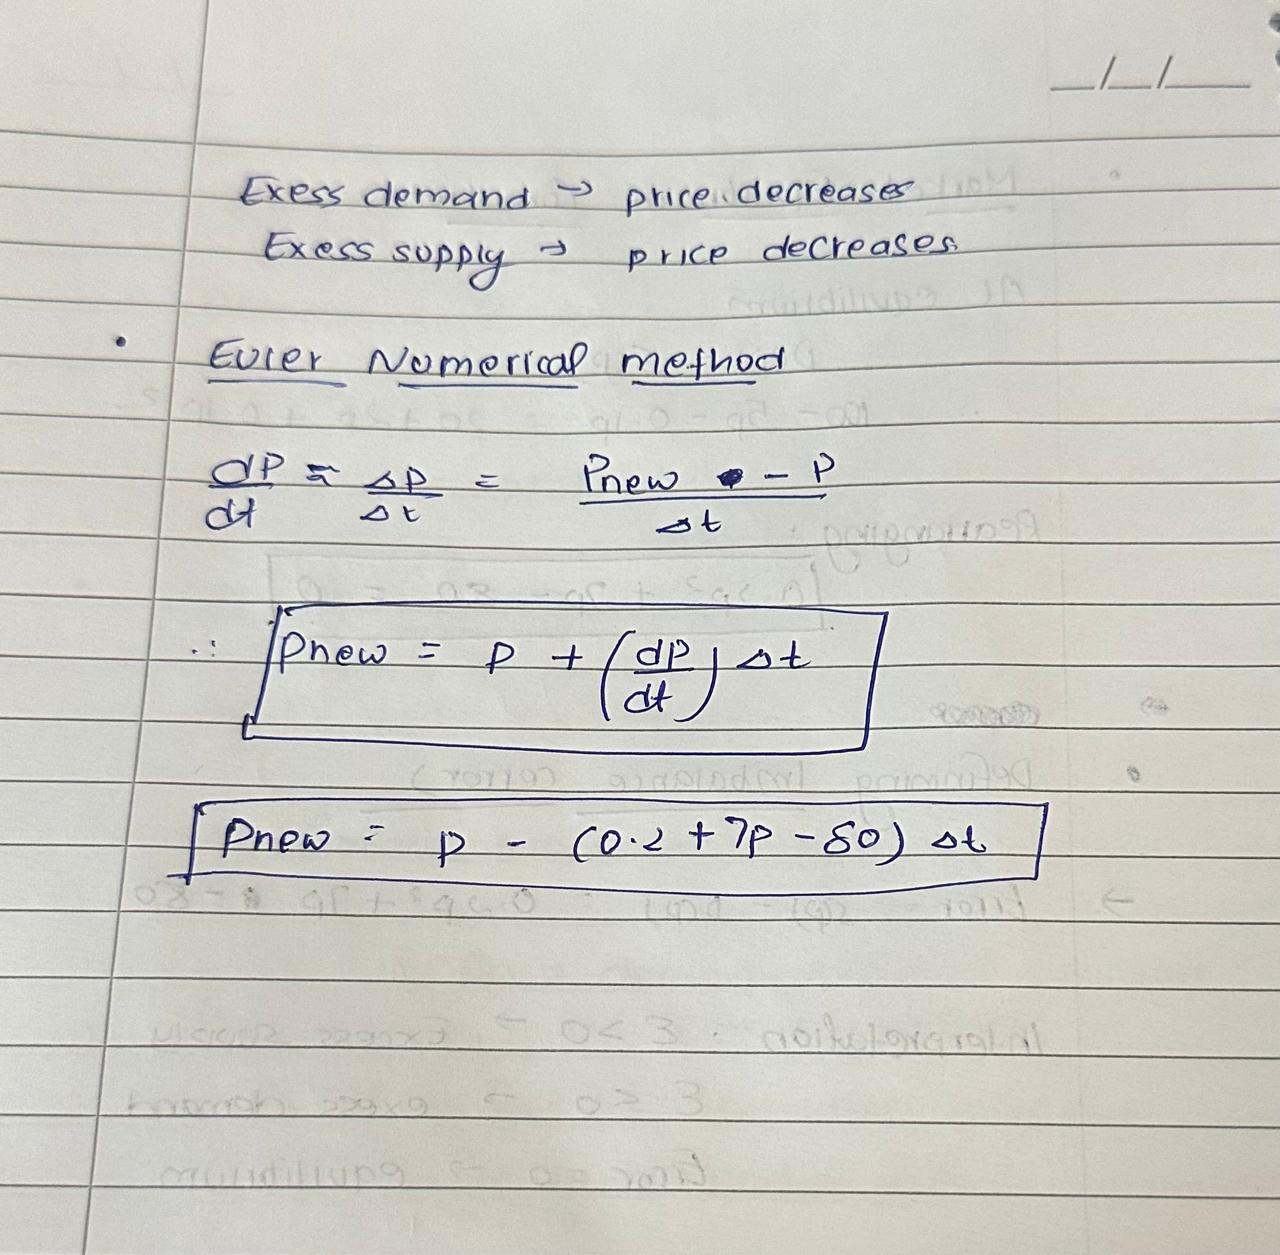 __/__/____
Exess demand → price decreases
Exess supply → price decreases.
• Euler Numerical method
dP/dt ≈ ΔP/Δt = Pnew - P / Δt
∴ Pnew = P + (dP/dt) Δt
Pnew = P - (0.2 + 7P - 80) Δt